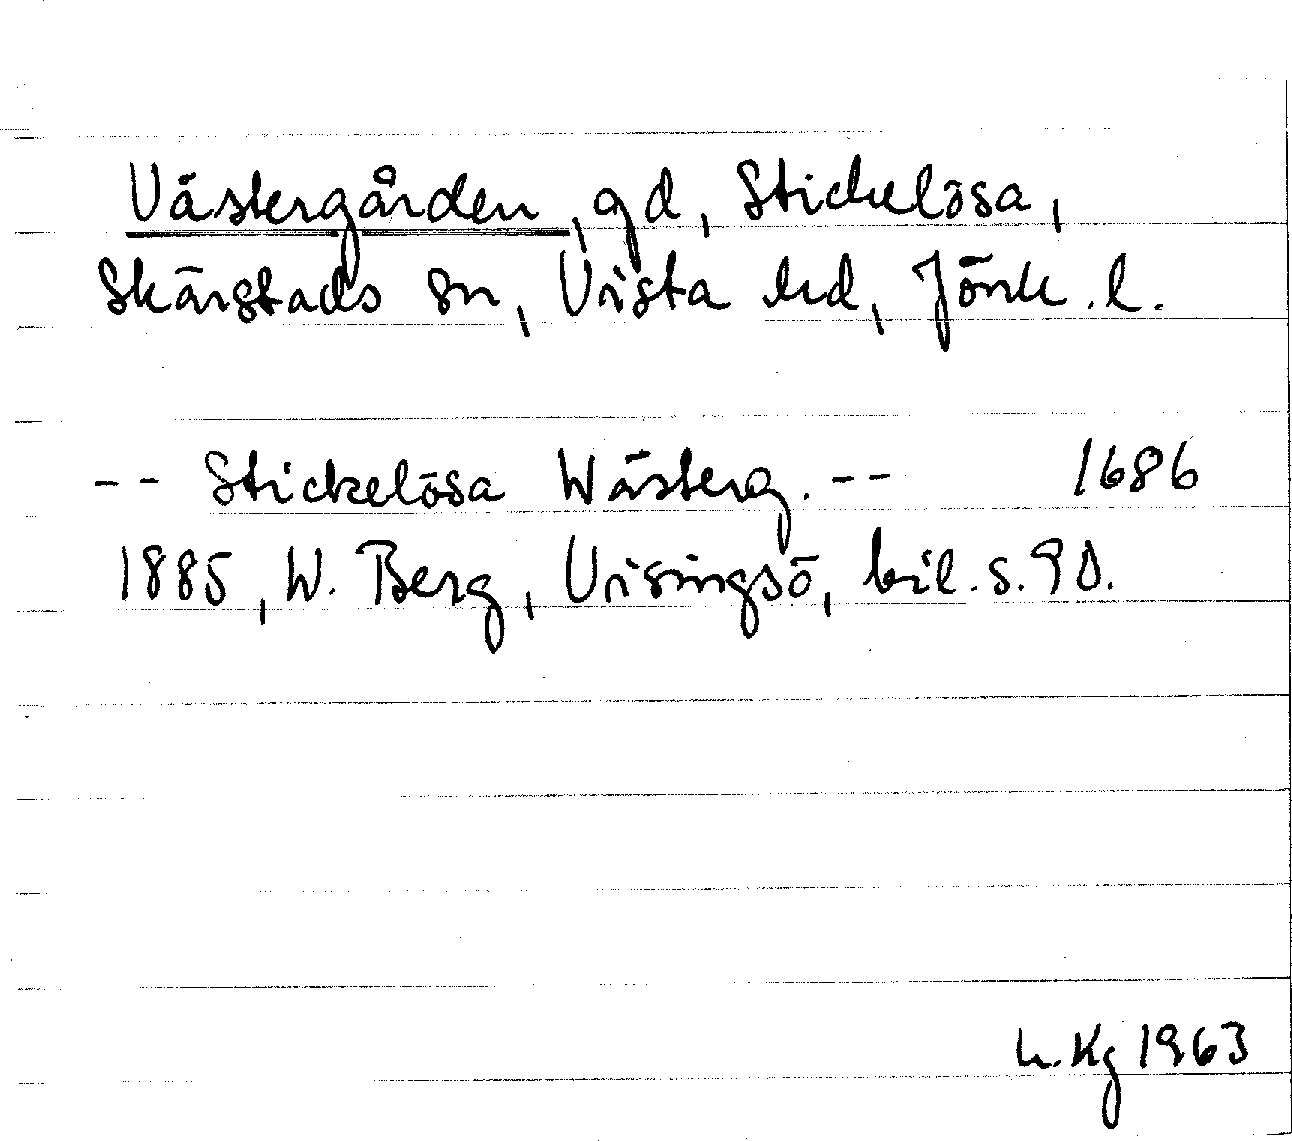 Västergården, gd, Stickelösa,
Skärstads sn, Vista hd, Jönk. l.
-- Stickelösa Wästerg. -- 1686
1885, W. Berg, Visingsö, bil. s. 90.
h. Kg 1963